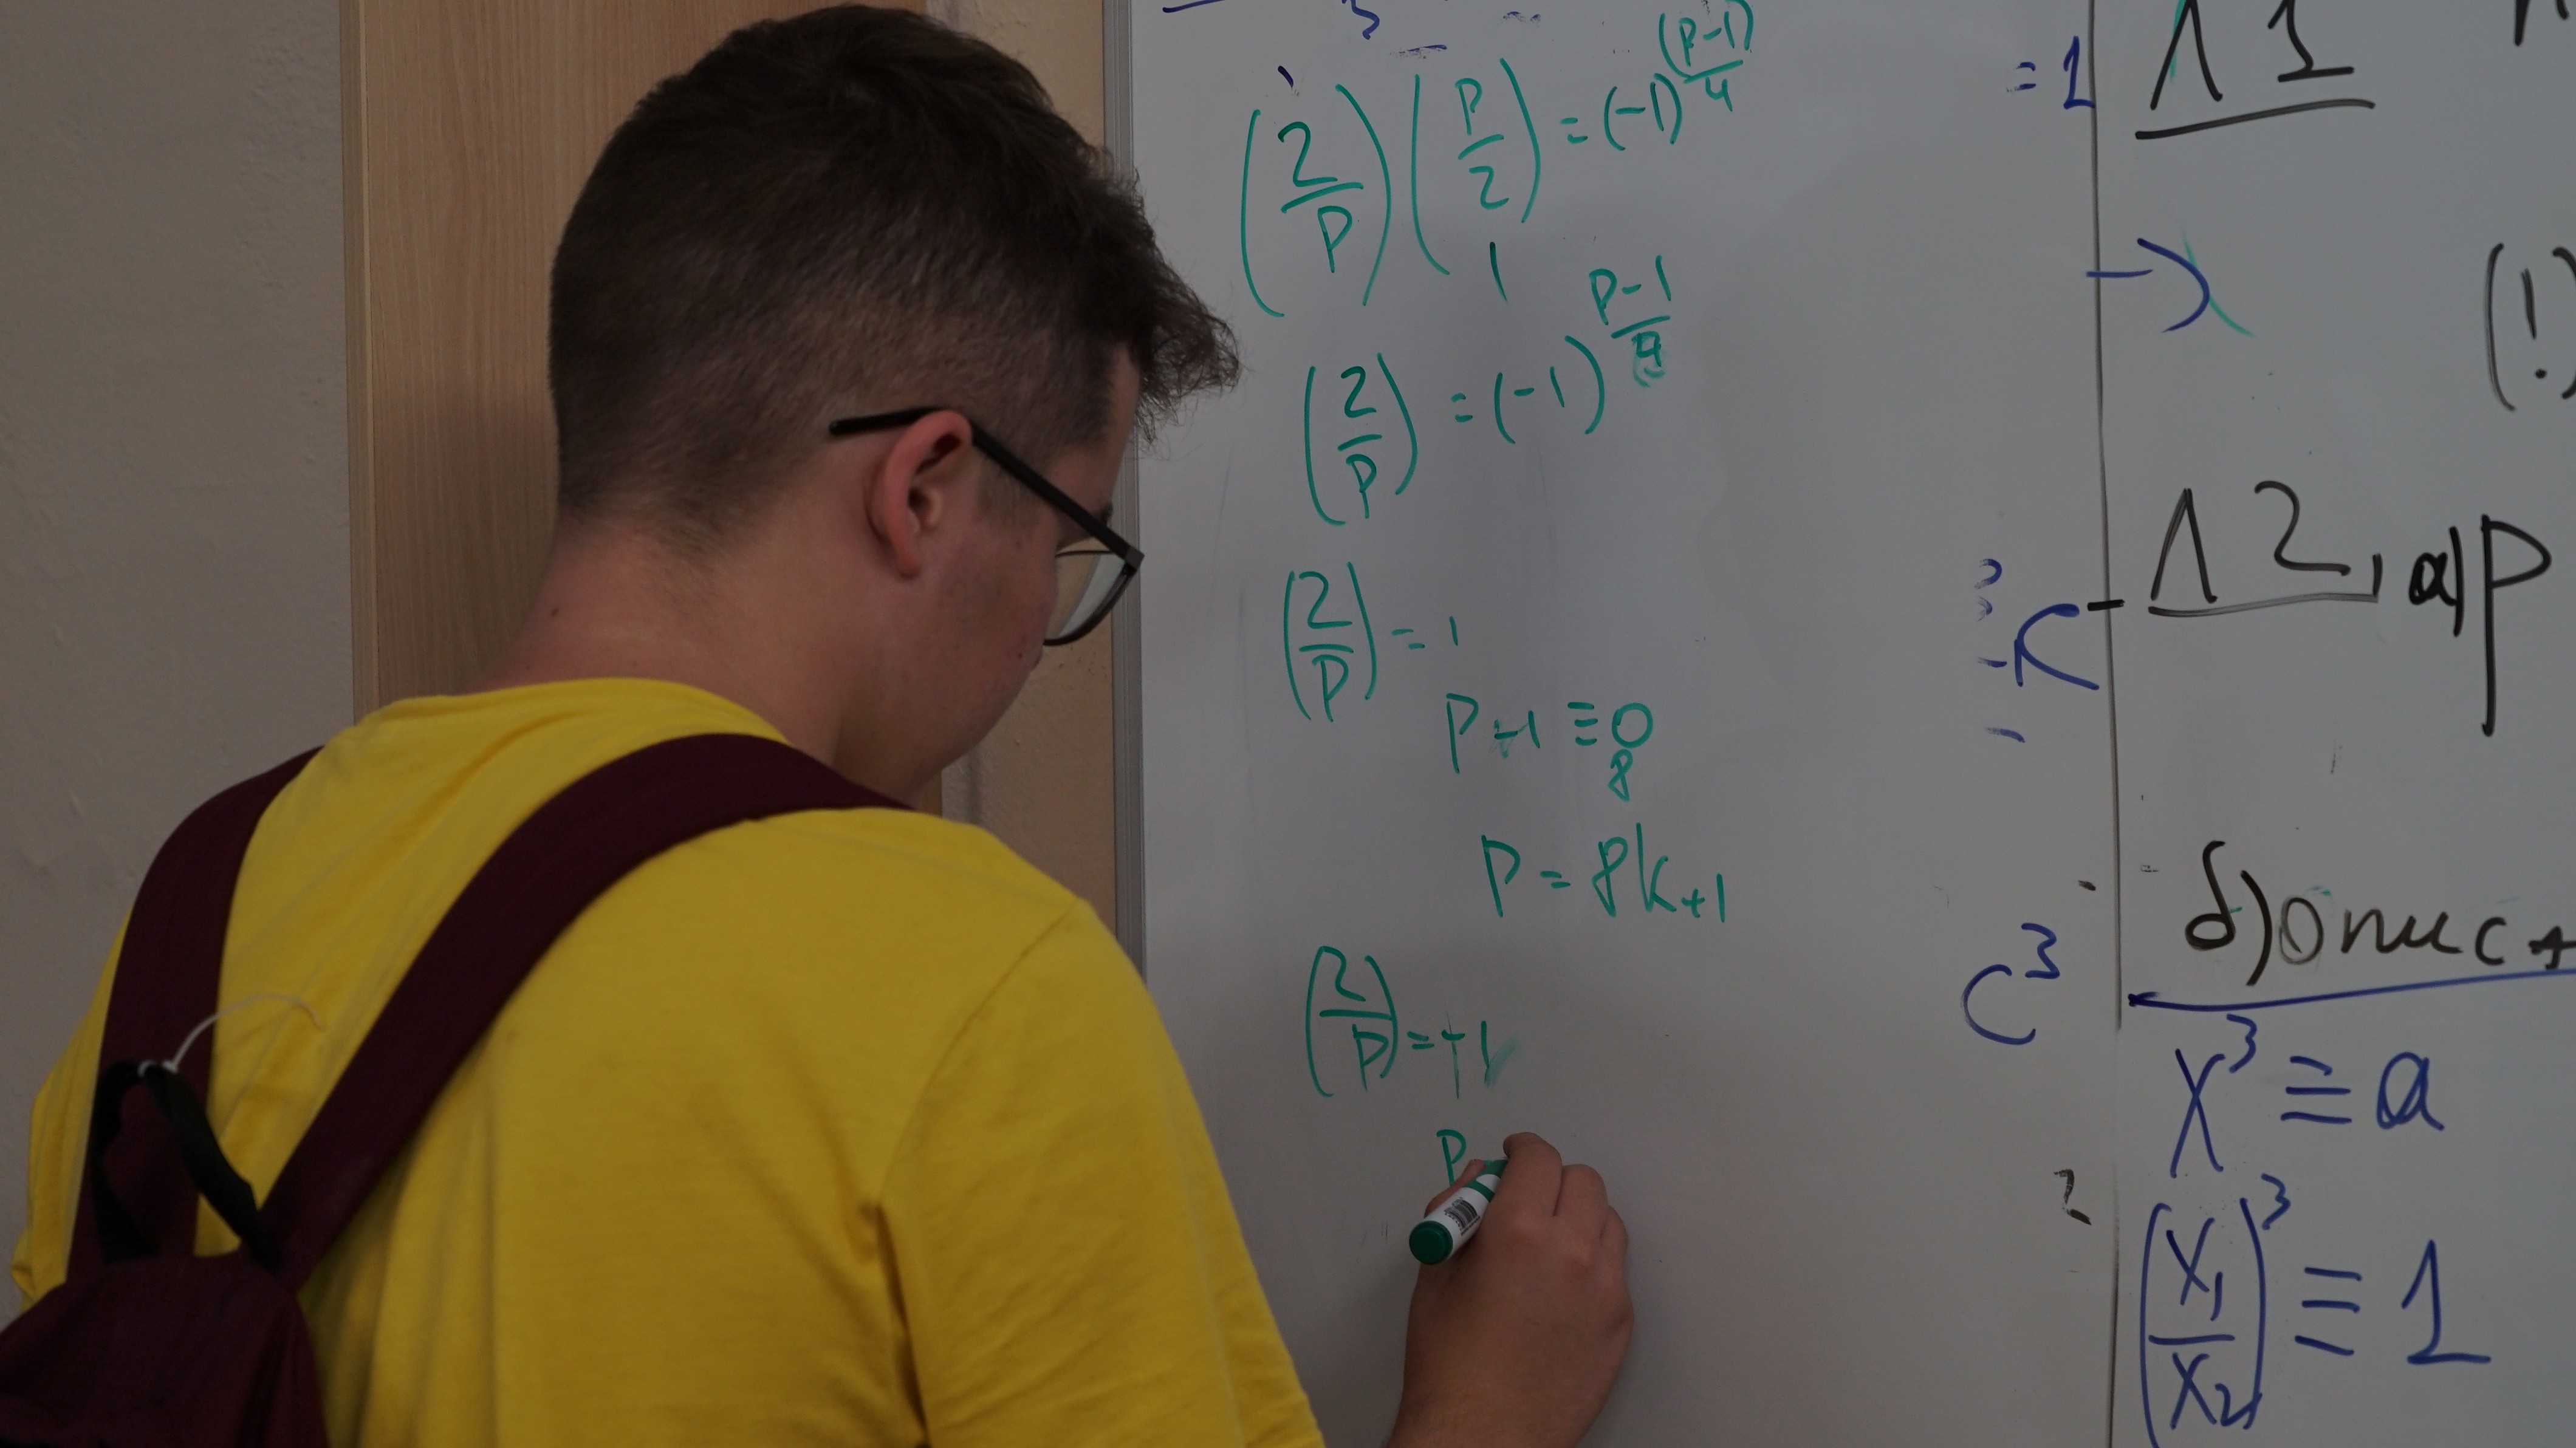 (2/p)(p/2) = (-1)^((p-1)/4)
1
(2/p) = (-1)^((p-1)/4)
(2/p) = 1
p-1 ≡ 0
8
p = 8k+1
(2/p) = +1
p
= 1
Λ 1
(!)
Λ 2, a) p
C³
δ) опис
x³ ≡ a
2
(x₁/x₂)³ ≡ 1